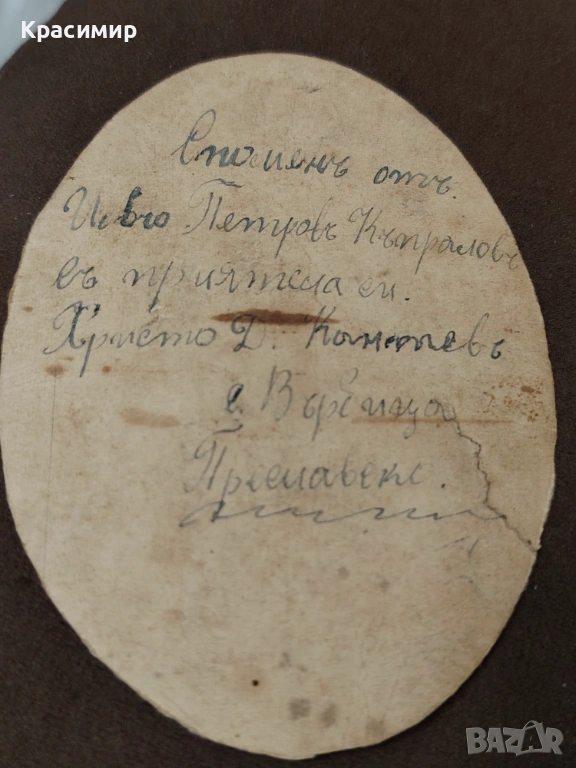 Красимир
Споменъ отъ.
Ивчо Петровъ Къпраловъ
съ приятела си.
Христо Д.
с. Върбица
Преславско.
BAZAR